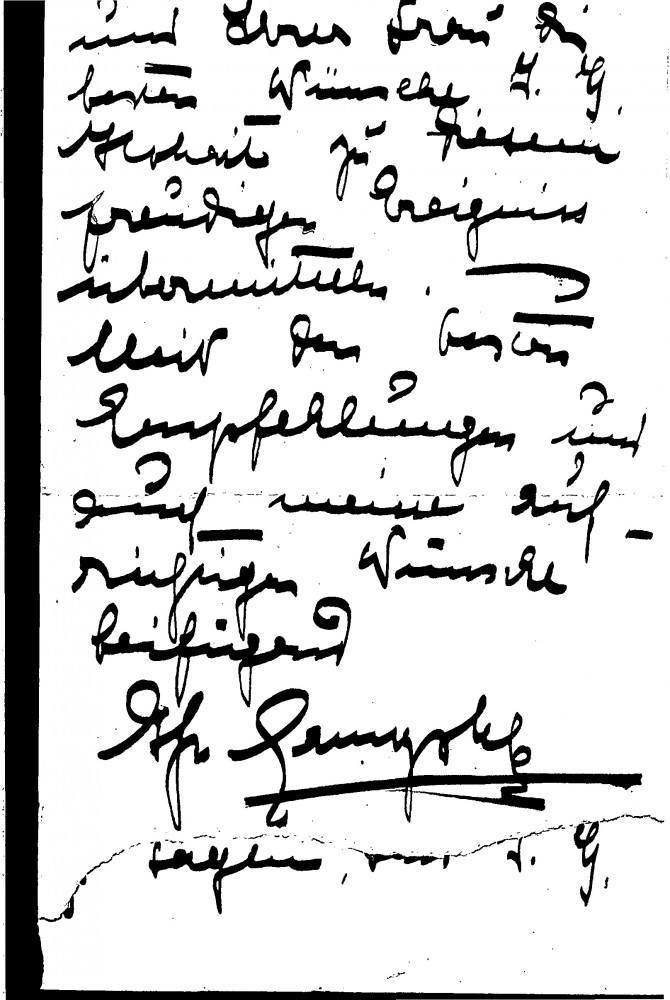 und Ihrer Frau die
besten Wünsche I. G.
Hoheit zu diesem
freudigen Ereigniss
übermitteln.
Mit den besten
Empfehlungen und
auch meine auf-
richtigen Wünsche
beifügend
sagen, I. G.